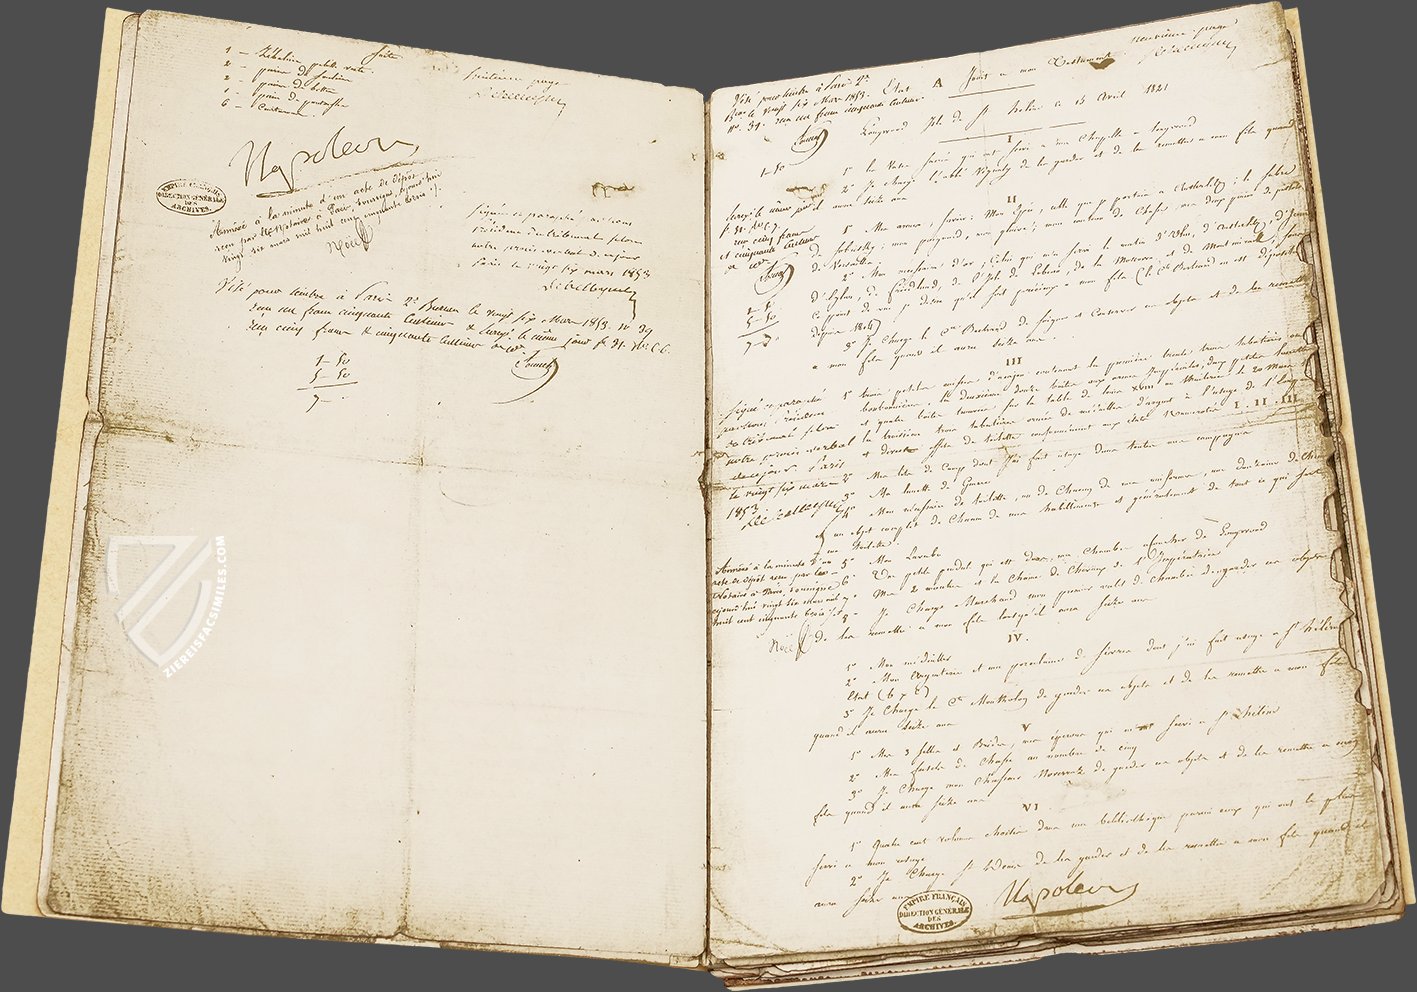 suite
huitième page
1 – Rédingotte petite verte
2 – paires de
2 – paires de bottes
1 – paire de pantoufles
6 – Ceinturons.
Napoleon
EMPIRE FRANÇAIS
DIRECTION GÉNÉRALE
DES
ARCHIVES.
Annexé à la minute d'un acte de dépôt
reçu par les Notaires à Paris, soussignés, cejourd'hui
vingt six mars mil huit cent cinquante trois.
Noël
Signé et paraphé par nous
président du tribunal
notre procès verbal de ce jour
Paris le vingt six mars 1853
Debelleyme
Visé pour timbre à Paris 2e Bureau le vingt six Mars 1853. no 39
reçu un franc cinquante centimes & Enregé. le même jour fo 31. Ro. C.
reçu cinq francs & cinquante centimes
1 – 50
5 – 50
7 – "
Visé pour timbre à Paris 2e
Bau le vingt six Mars 1853.
No. 39. reçu un franc cinquante centimes.
Etat A Joint a mon Testament
neuvieme page
Debelleyme
Longwood Isle de St Helene ce 15 Avril 1821
I
1 – 50
1° les Vases sacrés qui ont servi a ma Chapelle a Longwood
2° Je charge l'abbé Vignaly de les garder et de les remettre a mon fils quand
il aura seize ans
II
Enregé. le même jour
fo 31. Ro. C. 7.
reçu cinq francs
et cinquante centimes
1 – 50
5 – 50
7 – "
1° Mes armes, savoir: Mon Epée, celle que je portais a Austerlitz; le sabre
de Sobiesky; mon poignard, mon glaive; mon couteau de Chasse, mes deux paires de pistolets
de Versailles.
2° Mon necessaire d'or, Celui qui m'a servi le matin d'Ulm, d'Austerlitz, d'Jena
d'Eylau, de Friedland, de l'Isle de Lobau, de la Moscowa, et de Montmirail; sous
ce point de vue je desire qu'il soit précieux a mon fils (le Cte Bertrand en est dépositaire
depuis 1814)
3° Je Charge le Cte Bertrand de soigner et Conserver ces objets et de les remettre
a mon fils quand il aura seize ans.
III
Signé et paraphé
par nous, président
du tribunal
notre procès verbal
de ce jour Paris
le vingt six mars
1853
Debelleyme
1° trois petites caisses d'acajou contenant la première trente trois tabatières ou
bonbonnières, la deuxième douze boites aux armes Imperiales, deux petites lunettes
et quatre boites trouvées sur la table de Louis XVIII aux Tuileries le 20 Mars
la troisième trois tabatières ornées de médailles d'argent a l'usage de l'Empereur
et divers effets de toilette conformément aux états Numérotés I. II. III
2° Mes lits de Camp dont j'ai fait usage dans toutes mes campagnes
3° Ma lunette de Guerre
4° Mon nécessaire de toilette, un de Chacun de mes uniformes, une douzaine de Chemises
et un objet complet de Chacun de mes habillemens et généralement de tout ce qui sert
a ma toilette.
Annexé à la minute d'un
acte de dépôt reçu par les
Notaires à Paris, soussignés
cejourd'hui vingt six mars mil
huit cent cinquante trois
Noël
5° Mon Lavabo
6° Une petite pendule qui est dans ma Chambre a coucher de Longwood
7° Mes 2 montres et la Chaine de Cheveux de l'Impératrice
8° Je Charge Marchand mon premier valet de chambre de garder ces objets et
de les remettre a mon fils lorsqu'il aura seize ans
IV.
1° Mon médailler
2° Mon Argenterie et ma porcelaine de Sèvres dont j'ai fait usage a Ste Hélène
Etat (b & c)
3° Je Charge le Cte Montholon de garder ces objets et de les remettre a mon fils
quand il aura seize ans
V
1° Mes 3 selles et Brides, mes éperons qui m'ont servi a Ste Hélène
2° Mes fusils de Chasse au nombre de cinq
3° Je Charge mon Chasseur Noverraz de garder ces objets et de les remettre a mon
fils quand il aura seize ans
VI
1° Quatre cent volumes choisis dans ma bibliothèque parmi ceux qui ont le plus
servi a mon usage
2° Je Charge St Denis de les garder et de les remettre a mon fils quand il
aura seize ans
Napoleon
EMPIRE FRANÇAIS
DIRECTION GÉNÉRALE
DES
ARCHIVES.
ZIEREISFACSIMILES.COM